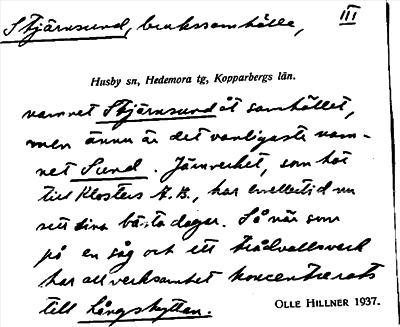 Stjärnsund, brukssamhälle, III
Husby sn, Hedemora tg, Kopparbergs län.
namnet Stjärnsund åt samhället,
men ännu är det vanligaste nam-
net Sund. Järnverket, som hör
till Klosters A.B., har emellertid nu
sett sina bästa dagar. Så när som
på en såg och ett trådvalsverk
har all verksamhet koncentrerats
till Långshyttan.
OLLE HILLNER 1937.